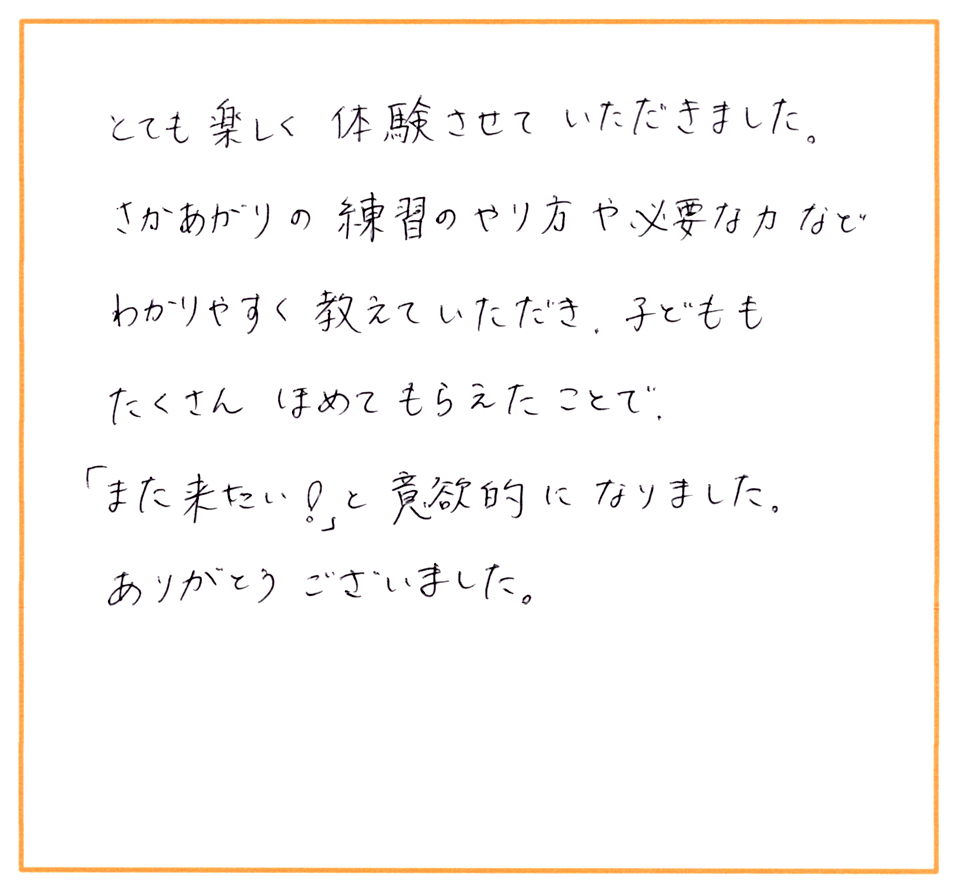 とても楽しく体験させていただきました。
さかあがりの練習のやり方や必要な力など
わかりやすく教えていただき、子どもも
たくさんほめてもらえたことで、
「また来たい!」と意欲的になりました。
ありがとうございました。